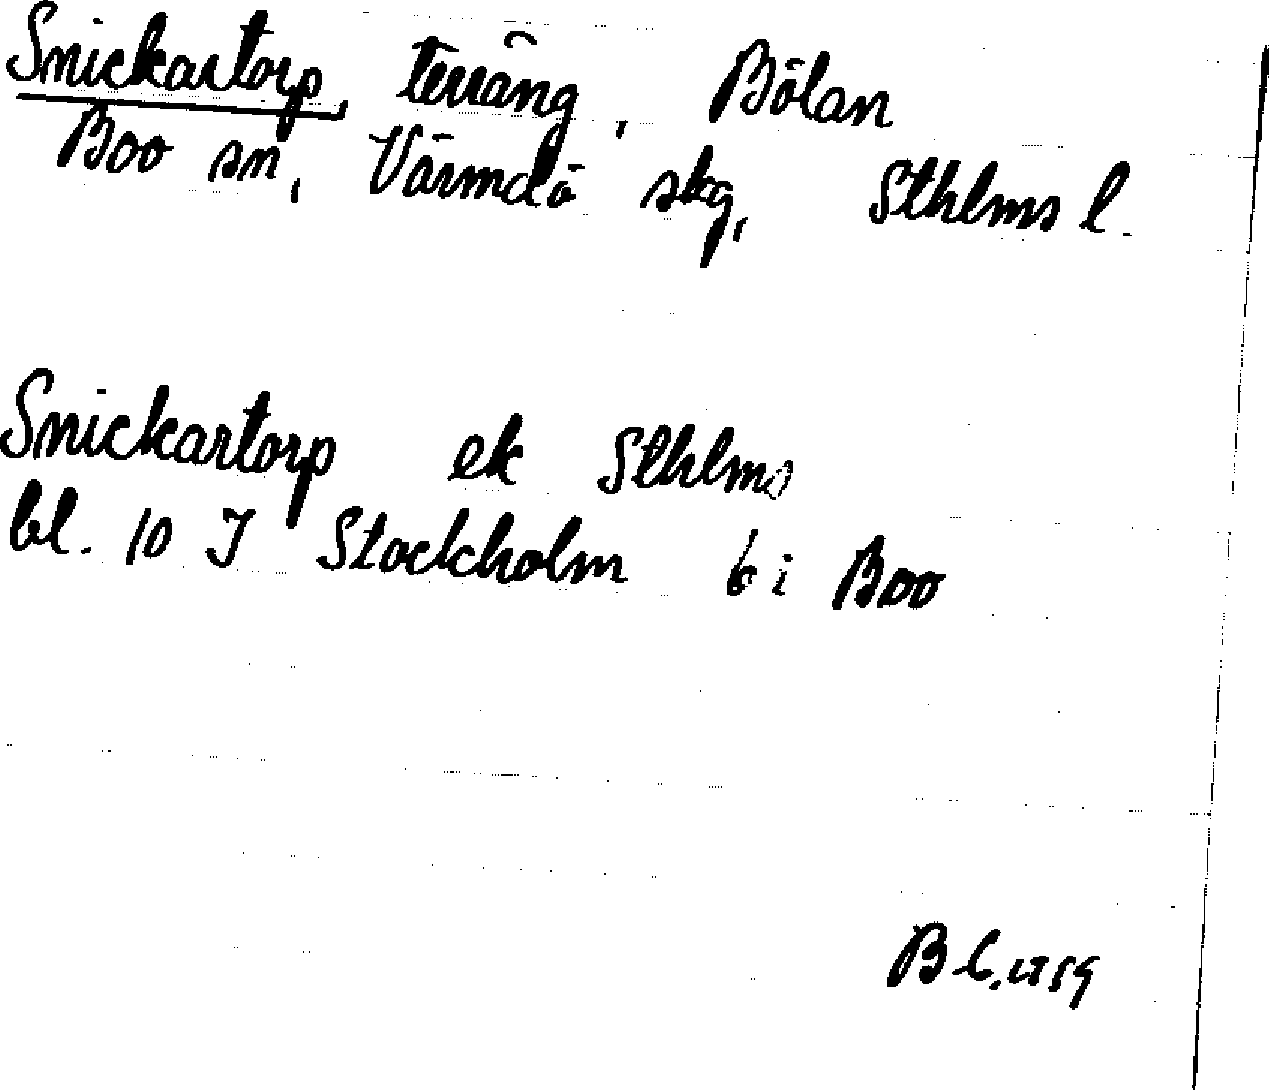 Snickartorp, terräng, Bölan
Boo sn, Värmdö skg, Sthlms l.
Snickartorp ek Sthlms
bl. 10 J Stockholm 6 i Boo